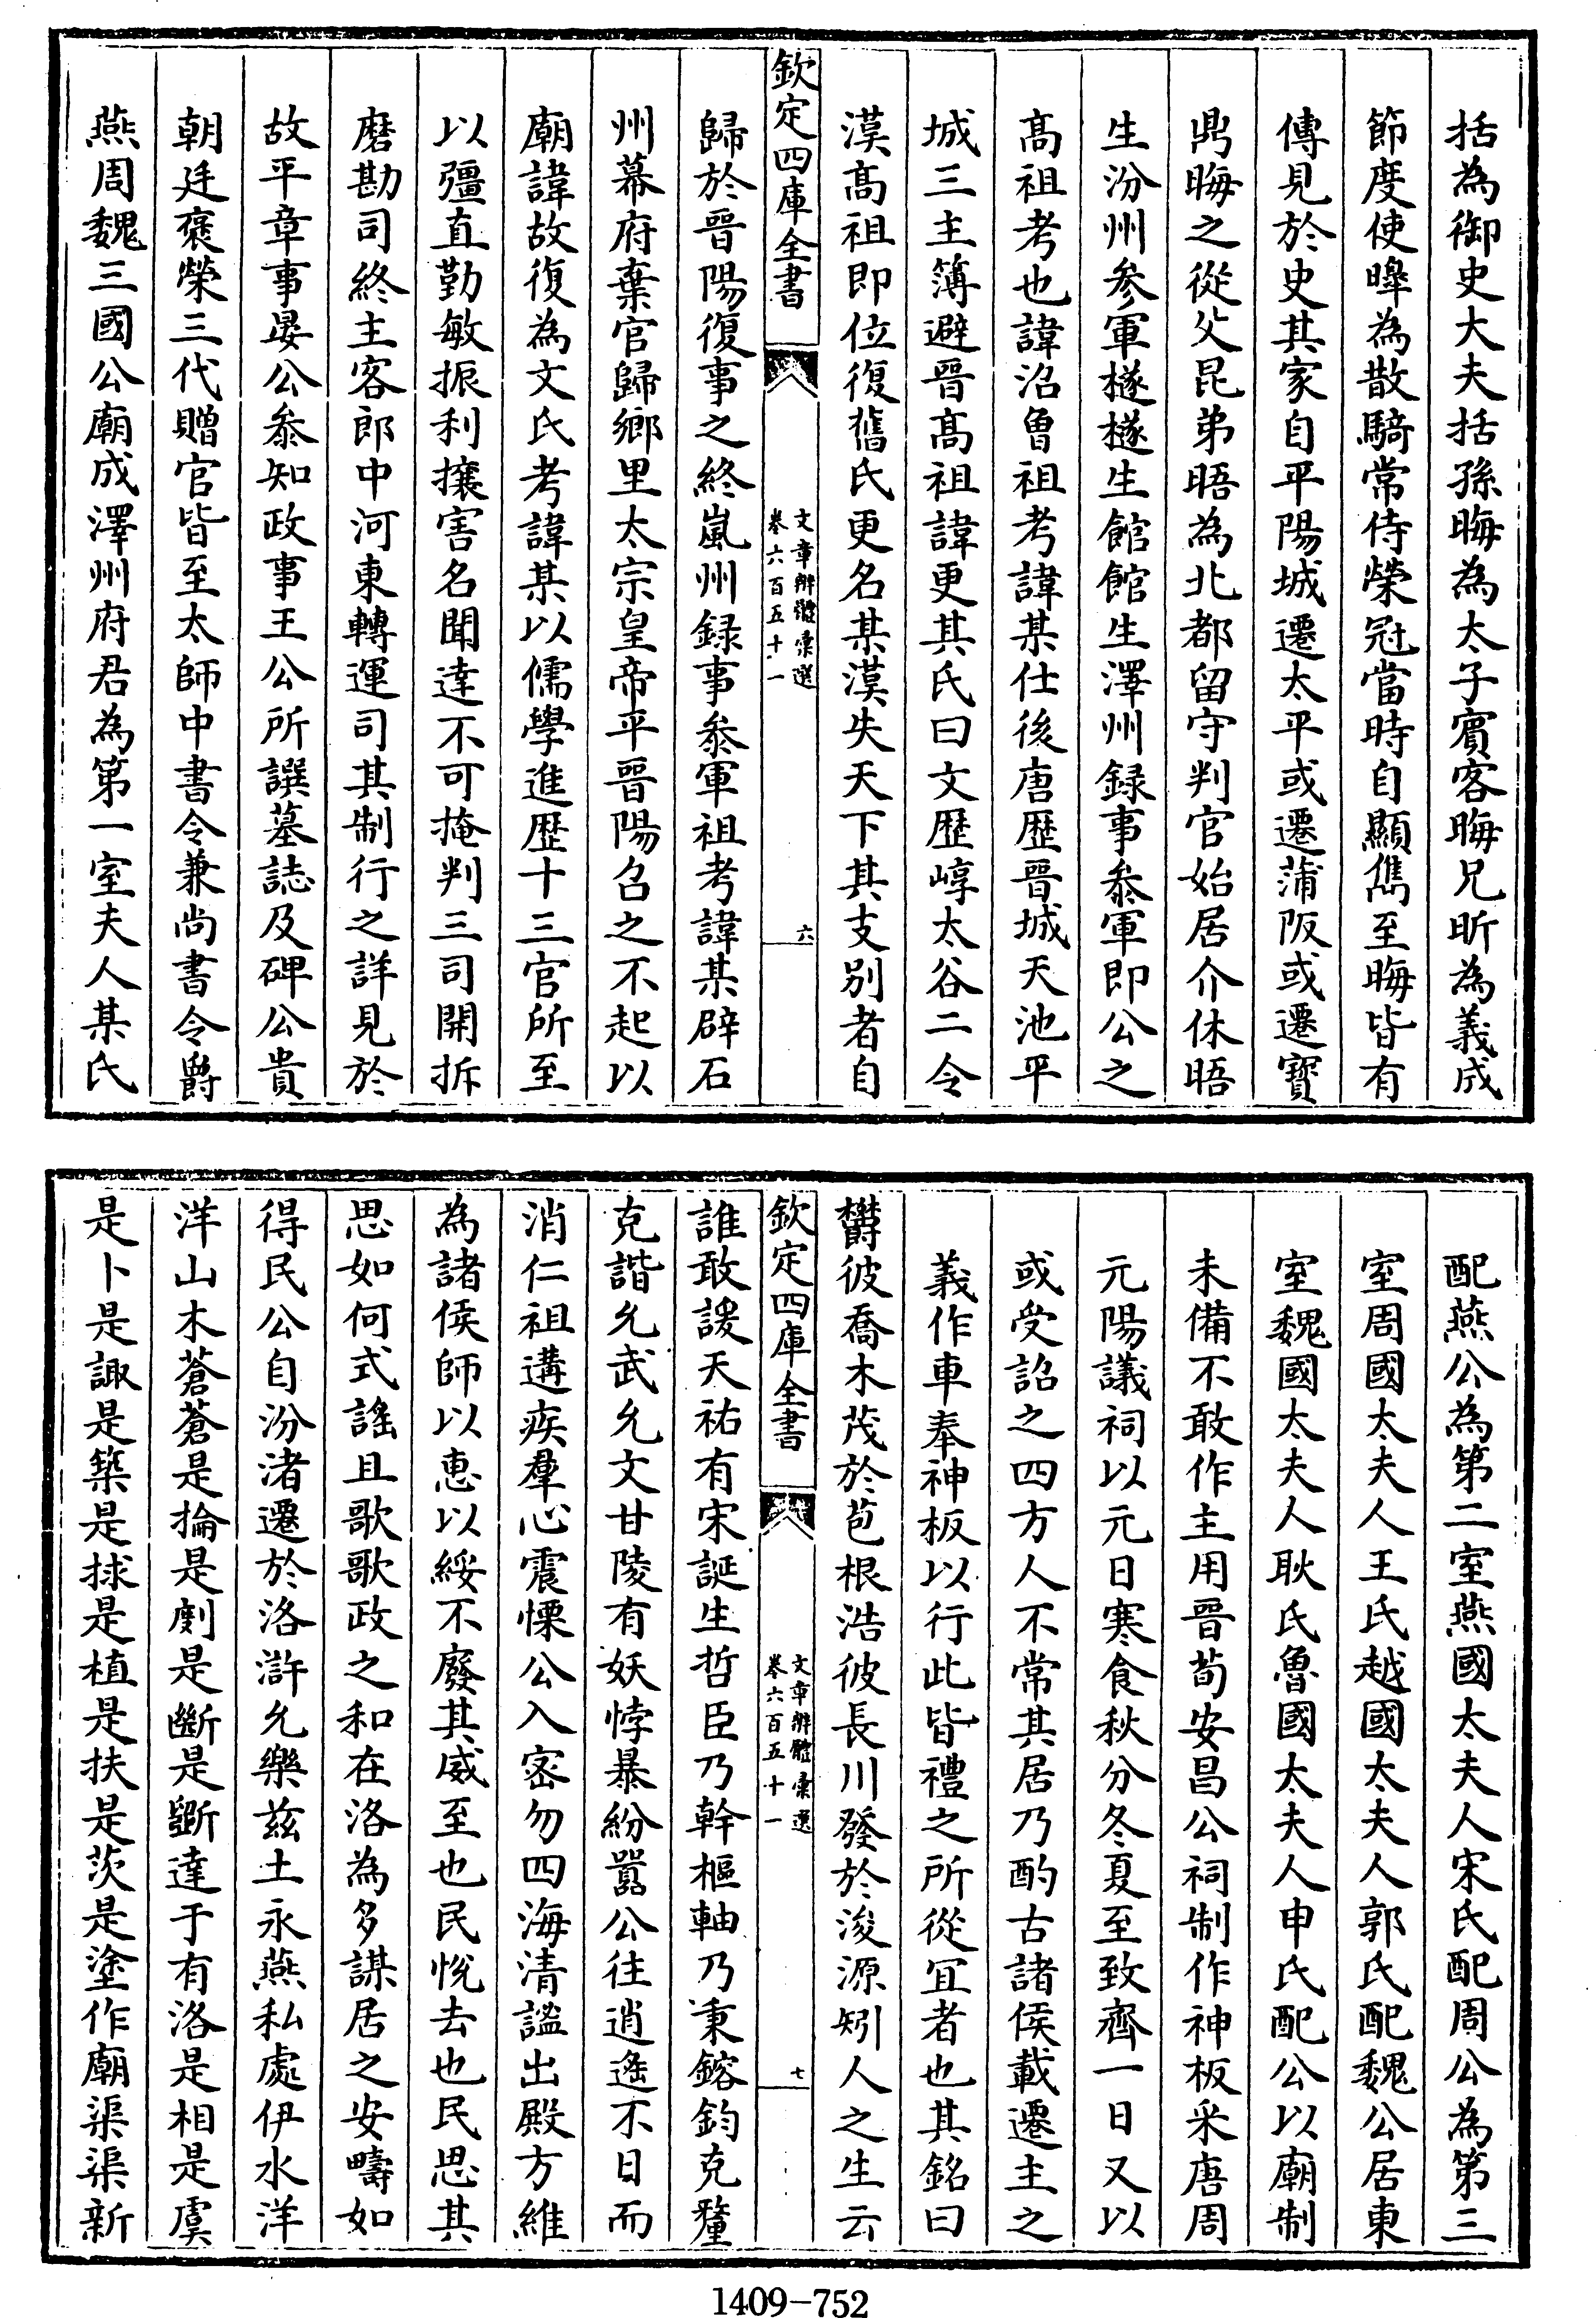 括為御史大夫括孫晦為太子賓客晦兄昕為義成
節度使暤為散騎常侍榮冠當時自顯雋至晦皆有
傳見於史其家自平陽城遷太平或遷蒲阪或遷寶
鼎晦之從父昆弟晤為北都留守判官始居介休晤
生汾州參軍檖檖生館館生澤州録事叅軍即公之
髙祖考也諱沼曾祖考諱某仕後唐歴晉城天池平
城三主簿避晉髙祖諱更其氏曰文歴崞太谷二令
漢髙祖即位復舊氏更名某漢失天下其支别者自
欽定四庫全書
文章辨體彚選
卷六百五十一
六
歸於晉陽復事之終嵐州録事叅軍祖考諱某辟石
州幕府棄官歸鄉里太宗皇帝平晉陽召之不起以
廟諱故復為文氏考諱某以儒學進歴十三官所至
以彊直勤敏振利攘害名聞達不可掩判三司開拆
磨勘司終主客郎中河東轉運司其制行之詳見於
故平章事晏公叅知政事王公所譔墓誌及碑公貴
朝廷襃榮三代贈官皆至太師中書令兼尚書令爵
燕周魏三國公廟成澤州府君為第一室夫人某氏
配燕公為第二室燕國太夫人宋氏配周公為第三
室周國太夫人王氏越國太夫人郭氏配魏公居東
室魏國太夫人耿氏魯國太夫人申氏配公以廟制
未備不敢作主用晉荀安昌公祠制作神板采唐周
元陽議祠以元日寒食秋分冬夏至致齊一日又以
或受詔之四方人不常其居乃酌古諸侯載遷主之
義作車奉神板以行此皆禮之所從冝者也其銘曰
欝彼喬木茂於苞根浩彼長川發於浚源矧人之生云
欽定四庫全書
文章辨體彚選
卷六百五十一
七
誰敢諼天祐有宋誕生哲臣乃幹樞軸乃秉鎔鈞克釐
克諧允武允文甘陵有妖悖暴紛囂公往逍遙不日而
消仁祖遘疾羣心震慄公入宻勿四海清謐出殿方維
為諸侯師以惠以綏不廢其威至也民悅去也民思其
思如何式謠且歌歌政之和在洛為多謀居之安疇如
得民公自汾渚遷於洛滸允樂兹土永燕私處伊水洋
洋山木蒼蒼是掄是劇是斷是斵達于有洛是相是虞
是卜是諏是築是捄是植是扶是茨是塗作廟渠渠新
1409-752